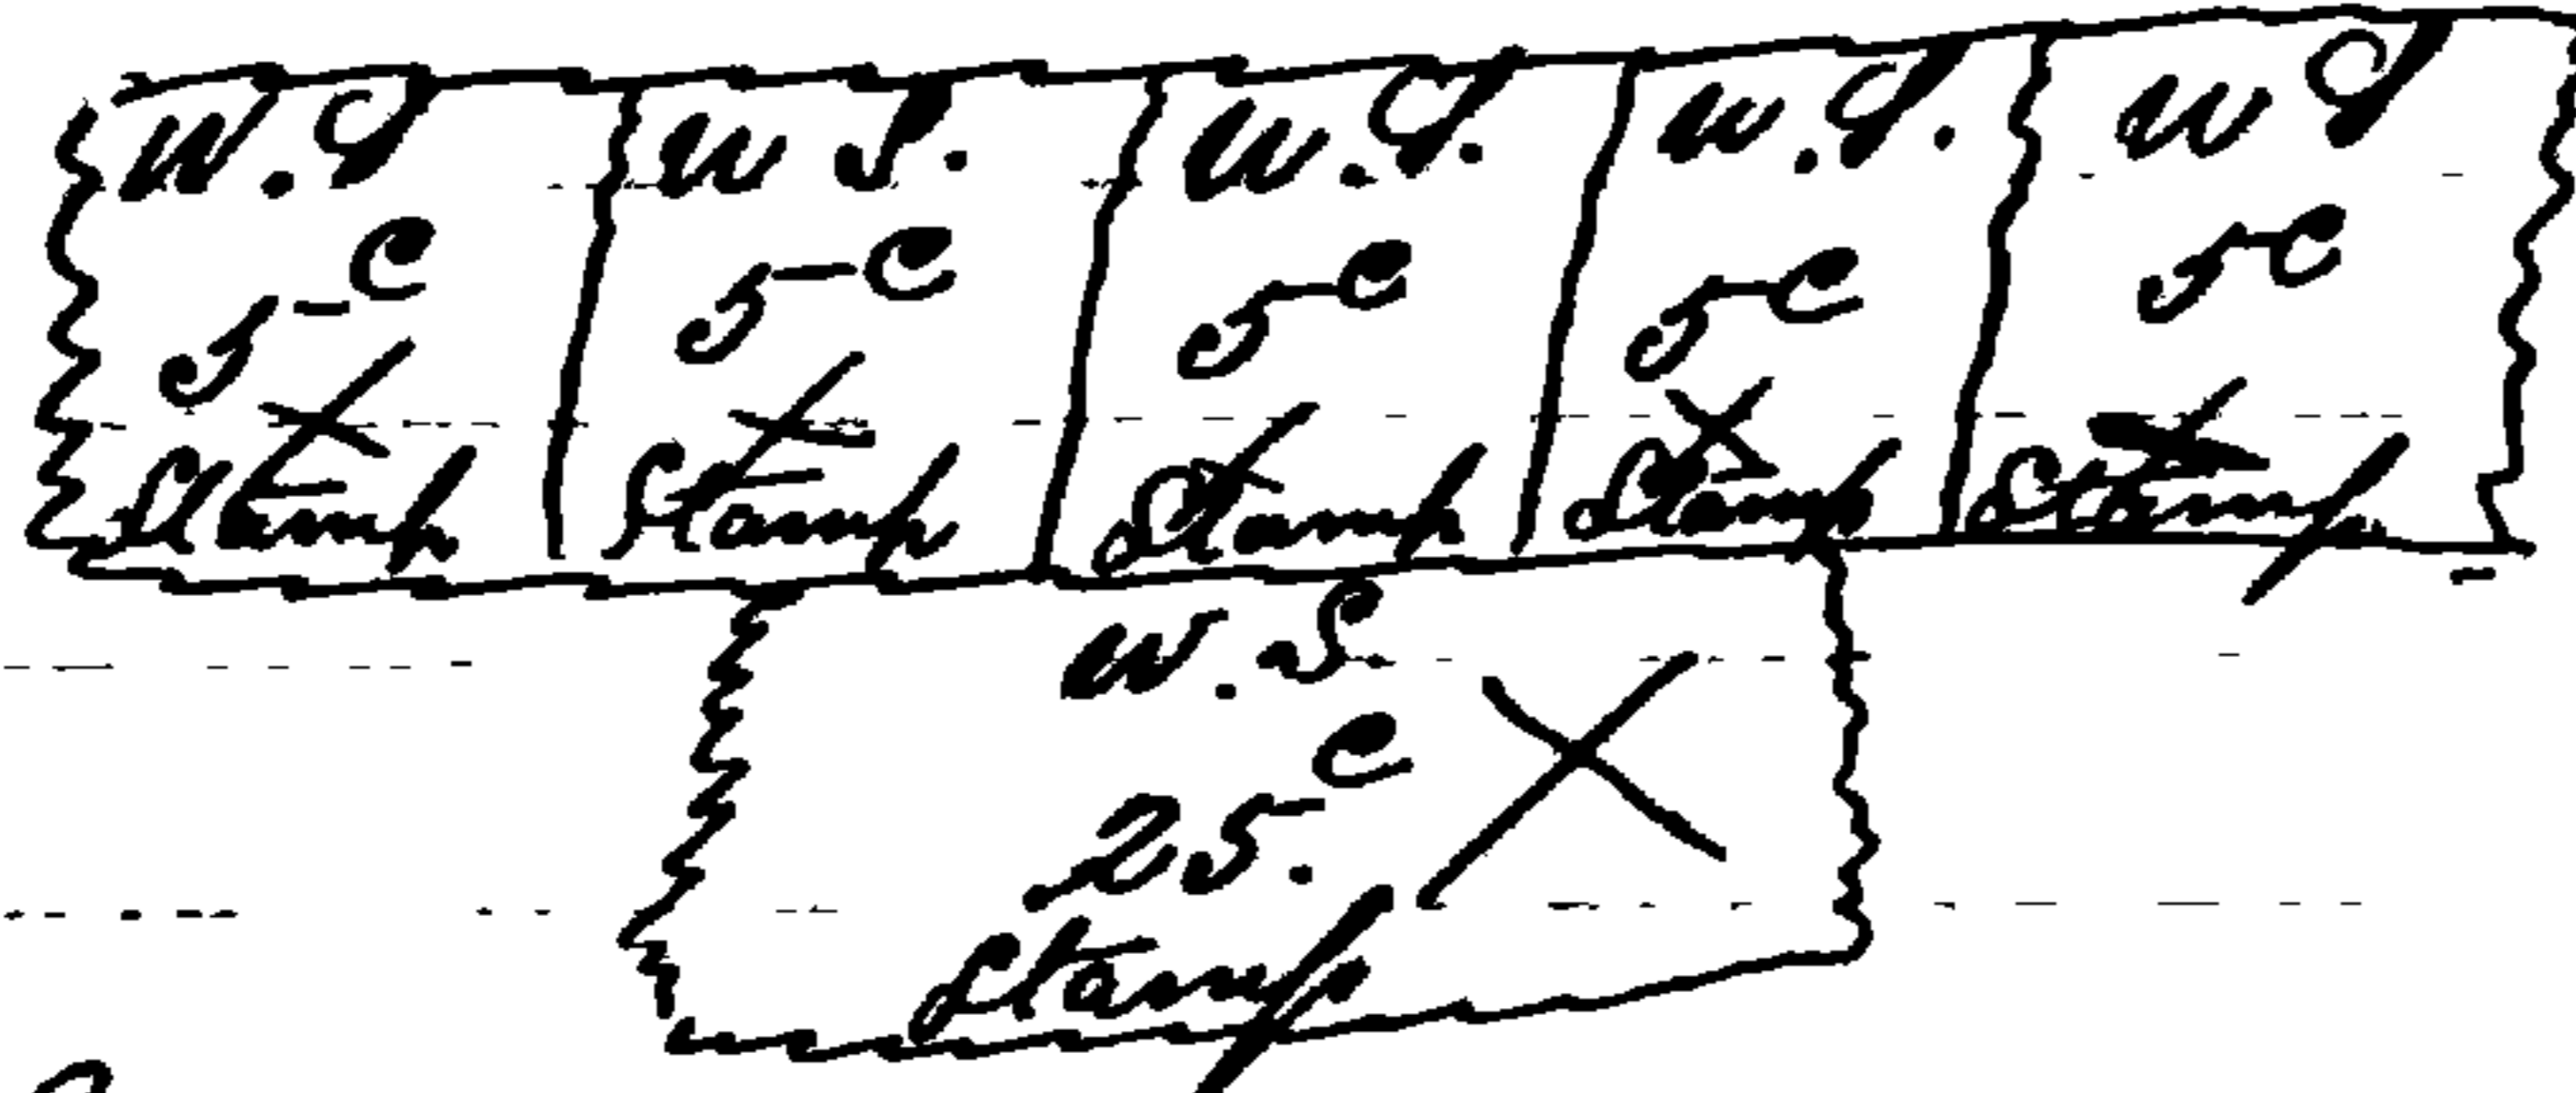 W. S
5c
Stamp
W S.
5c
Stamp
W. S.
5c
Stamp
W. S.
5c
Stamp
W S
5c
Stamp
W. S
25.c
Stamp